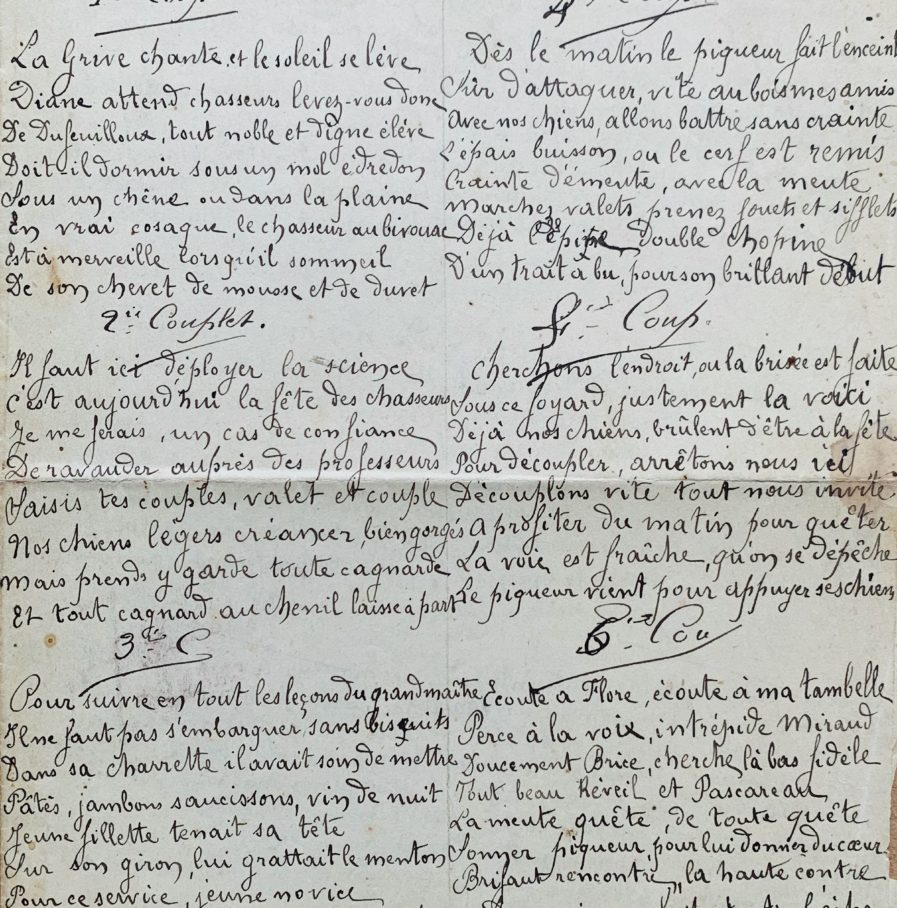 La Grive chante et le soleil se lève
Diane attend chasseurs levez-vous donc
De Dufeuilloux, tout noble et digne élève
Doit-il dormir sous un mol edredon
Sous un chêne ou dans la plaine
En vrai cosaque, le chasseur au bivouac
Est à merveille lorsqu'il sommeil
De son chevet de mousse et de duvet
2e Couplet.
Il faut ici déployer la science
c'est aujourd'hui la fête des chasseurs
Je me ferais, un cas de confiance
De ravauder auprès des professeurs
Saisis tes couples, valet et couple
Nos chiens légers créancer, bien gorgés
Mais prends y garde toute cagnarde
Et tout cagnard au chenil laisse à part
3e C
Pour suivre en tout les leçons du grand maître
Il ne faut pas s'embarquer, sans biscuits
Dans sa charrette il avait soin de mettre
Pâtés, jambons saucissons, vin de nuit
Jeune fillette tenait sa tête
Sur son giron, lui grattait le menton
Pour ce service, jeune novice
Dès le matin le piqueur fait l'enceint
Sûr d'attaquer, vite au bois mes amis
Avec nos chiens, allons battre sans crainte
L'épais buisson, ou le cerf est remis
Crainte d'émeute, avec la meute
Marchez valets prenez fouets et sifflets
Déjà double chopine
D'un trait à bu, pour son brillant début
Coup.
cherchons l'endroit, ou la brisée est faite
Sous ce foyard, justement la voici
Déjà nos chiens, brûlent d'être à la fête
Pour découpler, arrêtons nous ici
Découplons vite tout nous invite
A profiter du matin pour quêter
La voie est fraîche, qu'on se dépêche
Le piqueur vient pour appuyer ses chiens
6e Cou
Ecoute a Flore, écoute à ma tambelle
Perce à la voix, intrépide Miraud
Doucement Brice, cherche là bas fidèle
Tout beau Réveil et Pascareau
La meute quête, de toute quête
Sonner piqueur, pour lui donner du cœur.
Brifaut rencontre, la haute contre